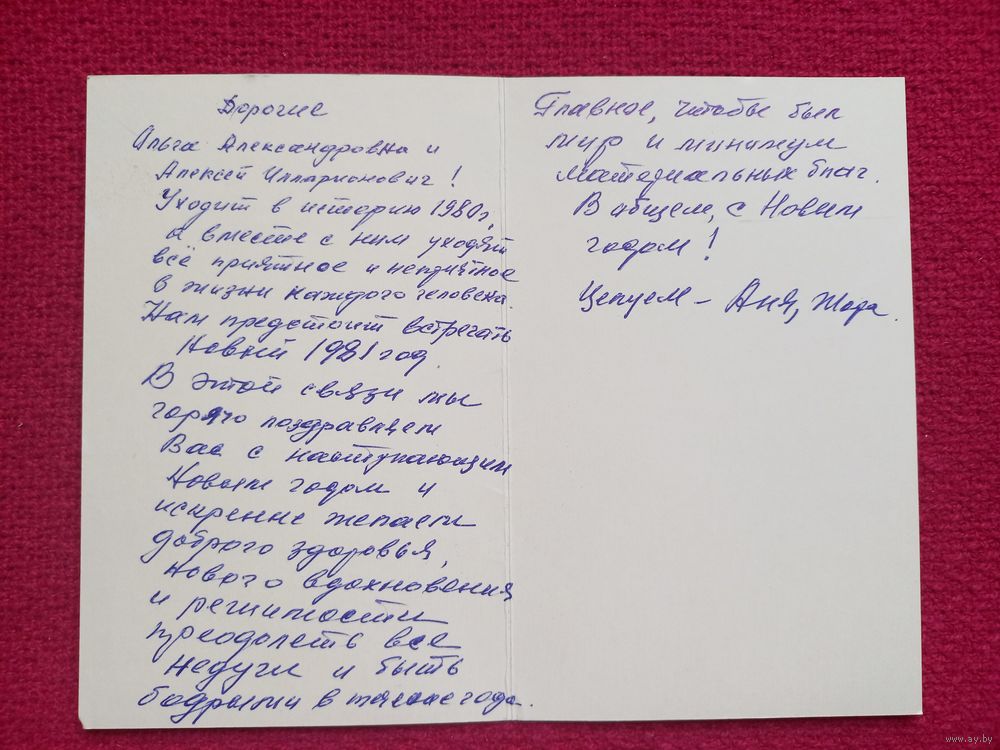 Дорогие
Ольга Александровна и
Алексей Илларионович!
Уходит в историю 1980г,
а вместе с ним уходят
всё приятное и неприятное
в жизни каждого человека.
Нам предстоит встречать
Новый 1981 год.
В этой связи мы
горячо поздравляем
Вас с наступающим
Новым годом и
искренне желаем
доброго здоровья,
нового вдохновения
и решимости
преодолеть все
недуги и быть
бодрыми в течение года.
Главное, чтобы был
мир и минимум
материальных благ.
В общем, с Новым
годом!
Целуем – Аня, Жора.
www.ay.by